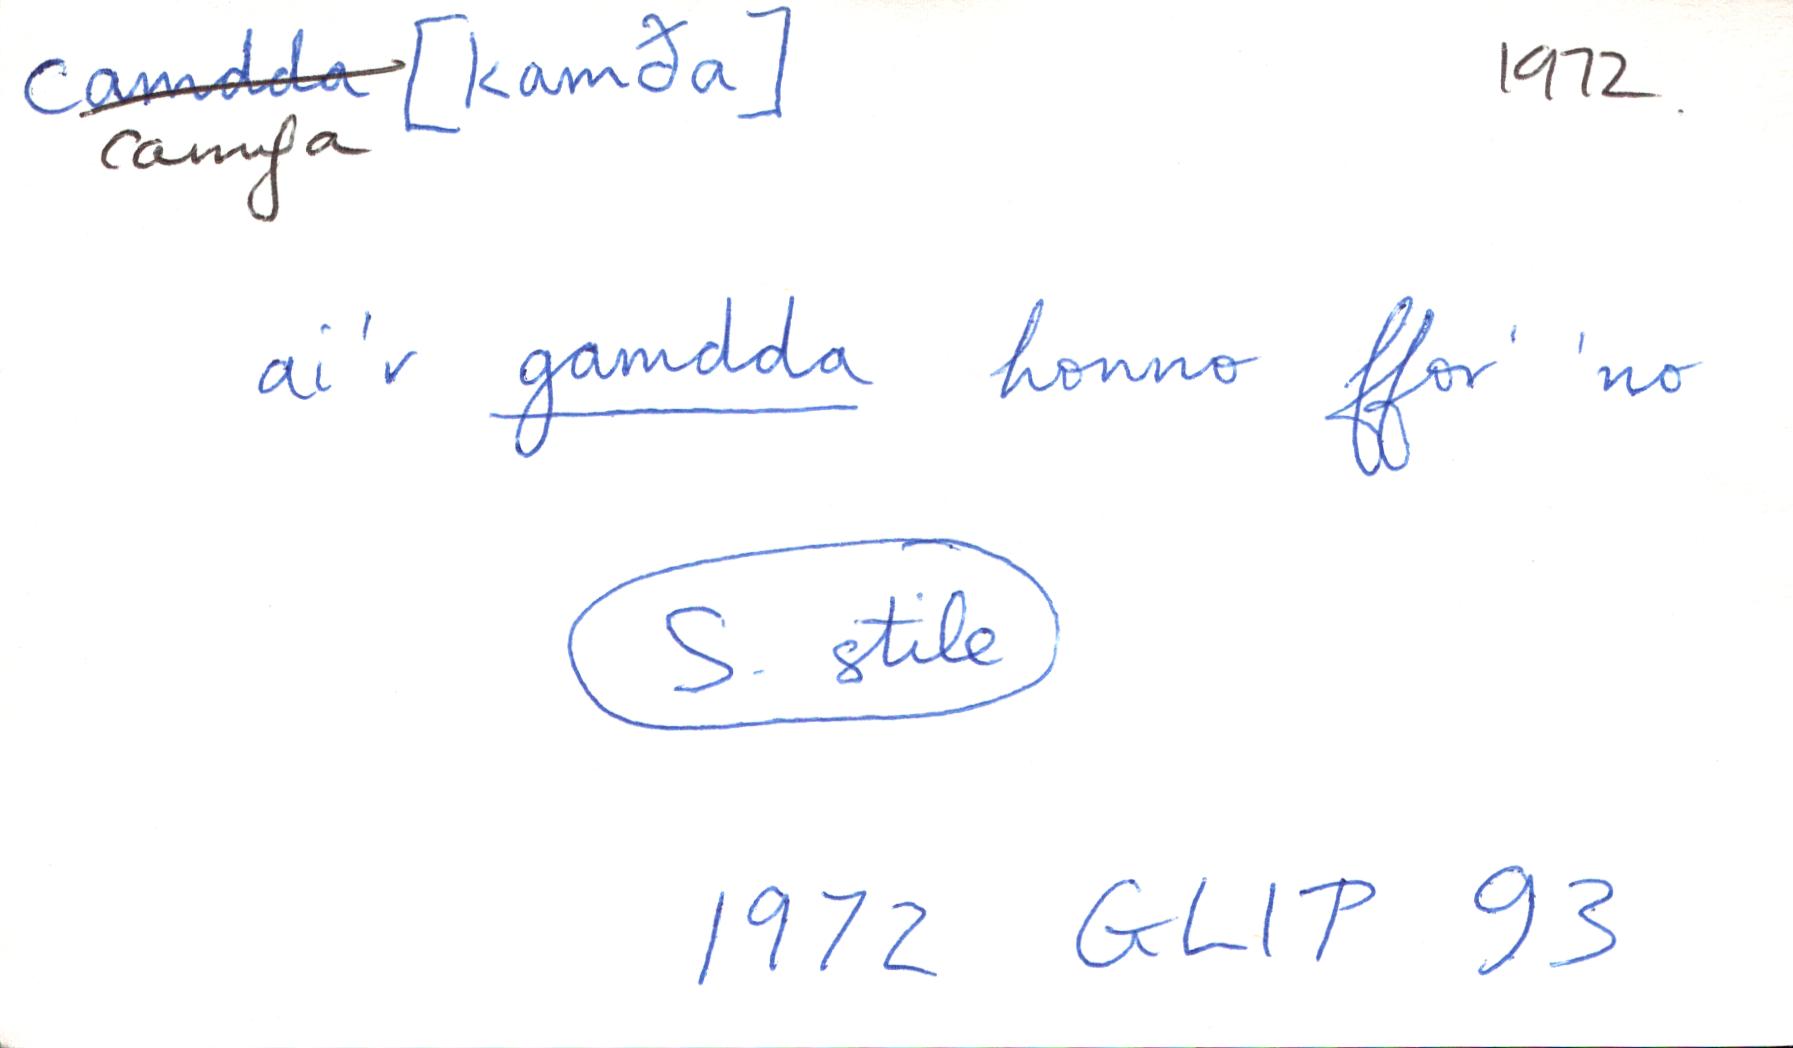 camdda [kamða] 1972.
camfa
ai'r gamdda honno ffor' 'no
S. stile
1972 GLIP 93